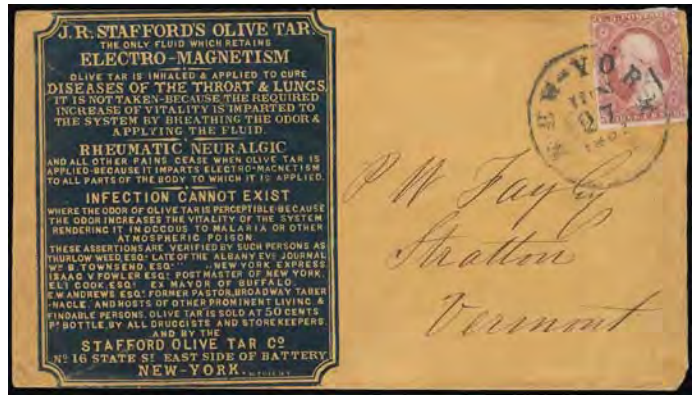 J.R. STAFFORD'S OLIVE TAR
THE ONLY FLUID WHICH RETAINS
ELECTRO-MAGNETISM
OLIVE TAR IS INHALED & APPLIED TO CURE
DISEASES OF THE THROAT & LUNGS,
IT IS NOT TAKEN-BECAUSE THE REQUIRED
INCREASE OF VITALITY IS IMPARTED TO
THE SYSTEM BY BREATHING THE ODOR &
APPLYING THE FLUID.
RHEUMATIC NEURALGIC
AND ALL OTHER PAINS CEASE WHEN OLIVE TAR IS
APPLIED-BECAUSE IT IMPARTS ELECTRO-MAGNETISM
TO ALL PARTS OF THE BODY TO WHICH IT IS APPLIED.
INFECTION CANNOT EXIST
WHERE THE ODOR OF OLIVE TAR IS PERCEPTIBLE-BECAUSE
THE ODOR INCREASES THE VITALITY OF THE SYSTEM
RENDERING IT INOCCOUS TO MALARIA OR OTHER
ATMOSPHERIC POISON
THESE ASSERTIONS ARE VERIFIED BY SUCH PERSONS AS
THURLOW WEED, ESQR LATE OF THE ALBANY EVG JOURNAL
WM B. TOWNSEND, ESQR " NEW YORK EXPRESS
ISAAC V FOWLER ESQR POSTMASTER OF NEW YORK,
ELI COOK ESQR EX MAYOR OF BUFFALO,
E.W. ANDREWS ESQR FORMER PASTOR, BROADWAY TABER
-NACLE, AND HOSTS OF OTHER PROMINENT LIVING &
FINDABLE PERSONS. OLIVE TAR IS SOLD AT 50 CENTS
PR BOTTLE, BY ALL DRUGGISTS AND STOREKEEPERS.
AND BY THE
STAFFORD OLIVE TAR CO
NO 16 STATE ST EAST SIDE OF BATTERY
NEW-YORK.
U.S. POSTAGE
NEW-YORK
27
P W
Stratton
Vermont